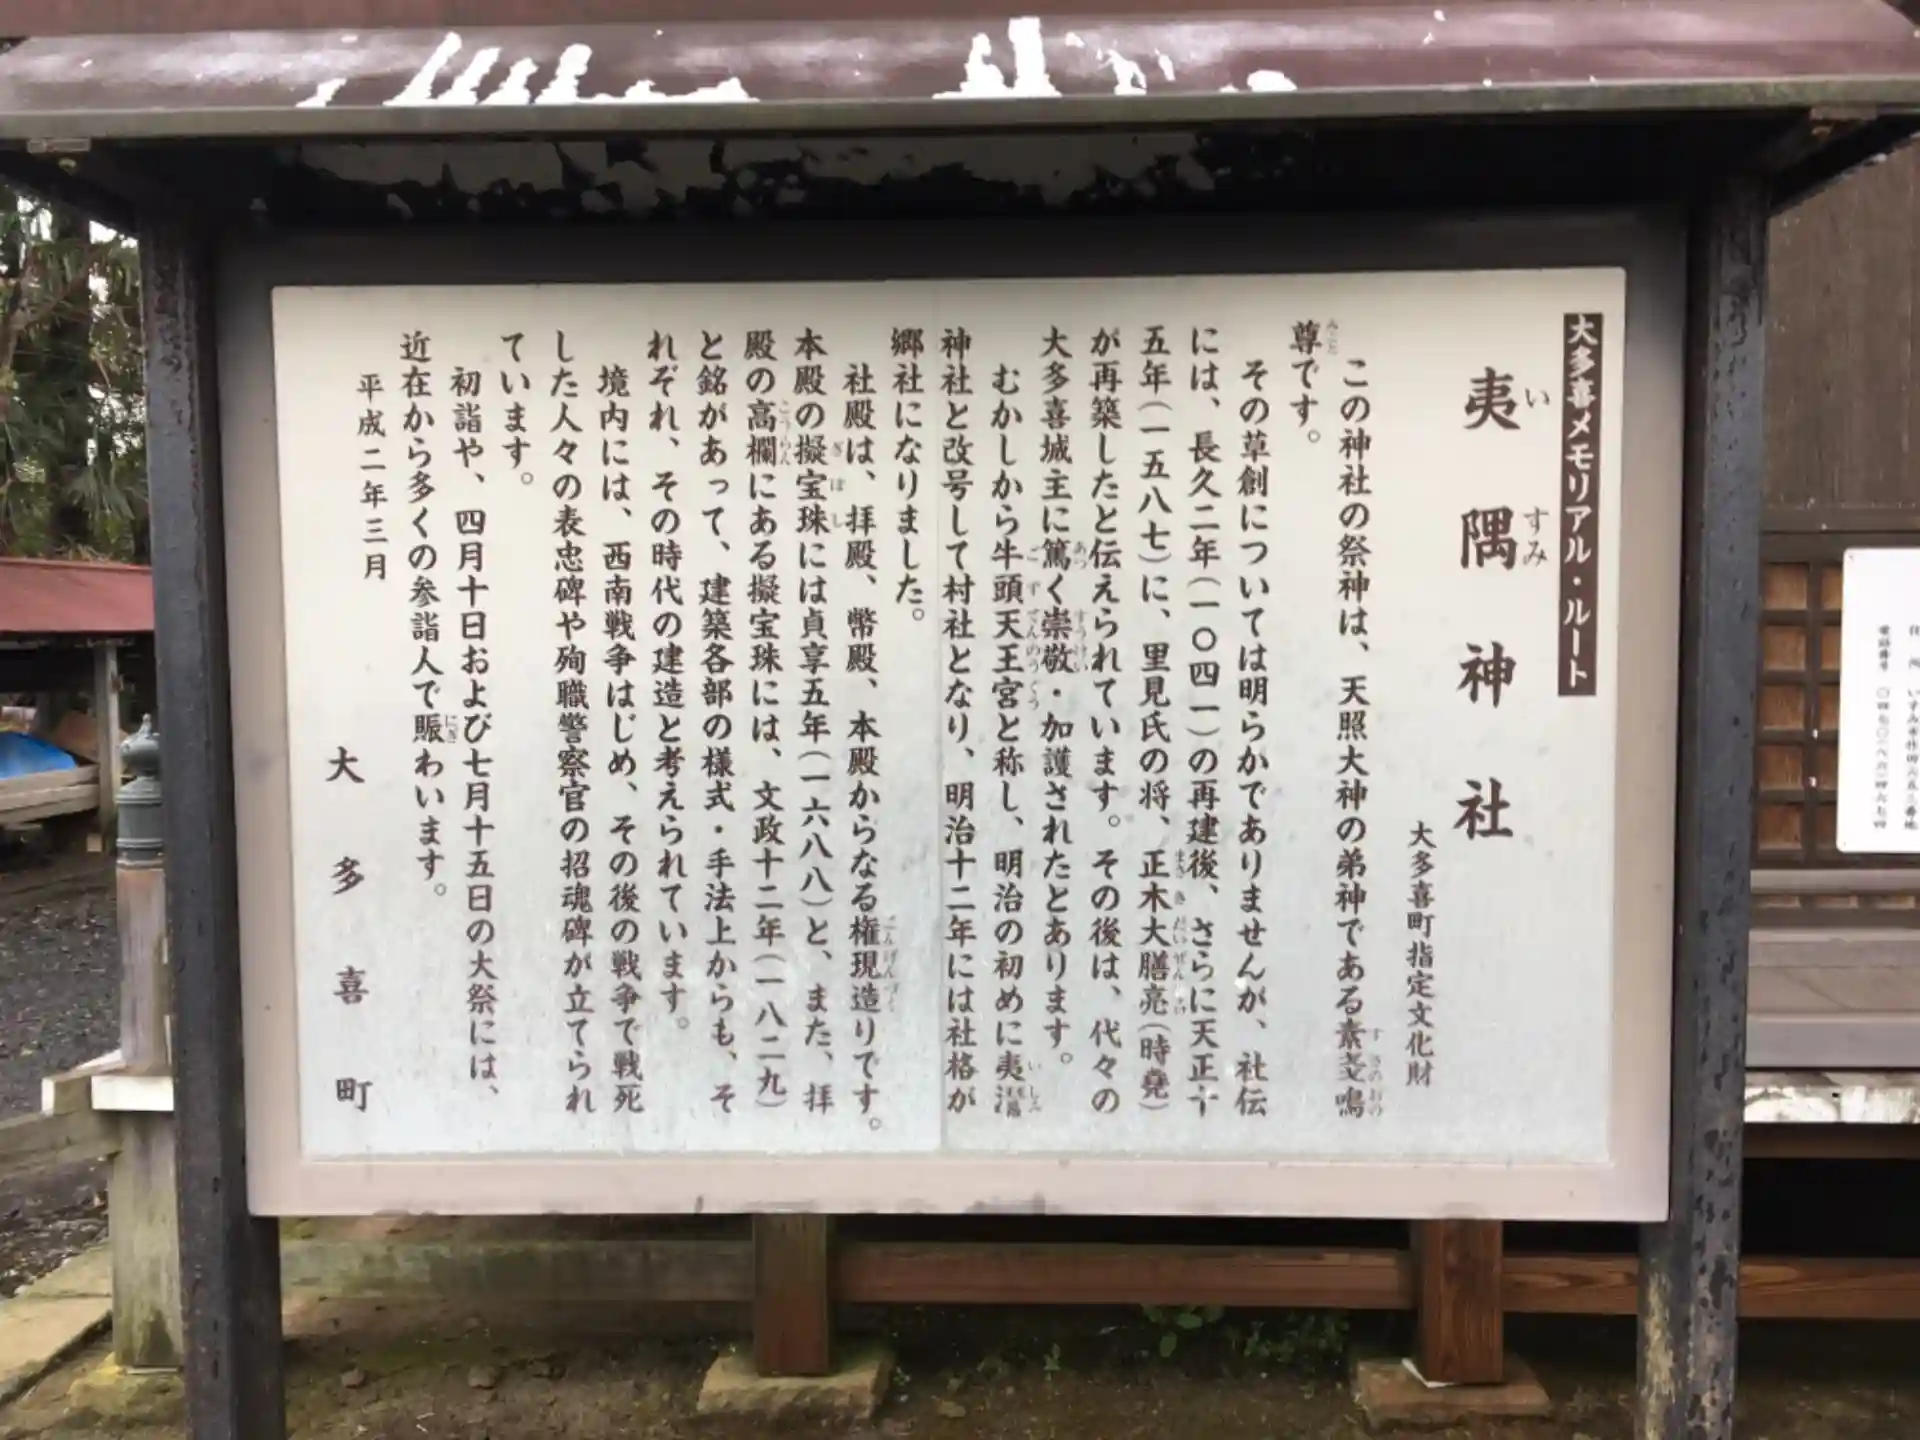 大多喜メモリアル・ルート
夷隅神社
いすみ
大多喜町指定文化財
この神社の祭神は、天照大神の弟神である素戔嗚
尊です。
その草創については明らかでありませんが、社伝
には、長久二年(一〇四一)の再建後、さらに天正十
五年(一五八七)に、里見氏の将、正木大膳亮(時堯)
が再築したと伝えられています。その後は、代々の
大多喜城主に篤く崇敬・加護されたとあります。
むかしから牛頭天王宮と称し、明治の初めに夷灊
神社と改号して村社となり、明治十二年には社格が
郷社になりました。
社殿は、拝殿、幣殿、本殿からなる権現造りです。
本殿の擬宝珠には貞享五年(一六八八)と、また、拝
殿の高欄にある擬宝珠には、文政十二年(一八二九)
と銘があって、建築各部の様式・手法上からも、そ
れぞれ、その時代の建造と考えられています。
境内には、西南戦争はじめ、その後の戦争で戦死
した人々の表忠碑や殉職警察官の招魂碑が立てられ
ています。
初詣や、四月十日および七月十五日の大祭には、
近在から多くの参詣人で賑わいます。
平成二年三月
大多喜町